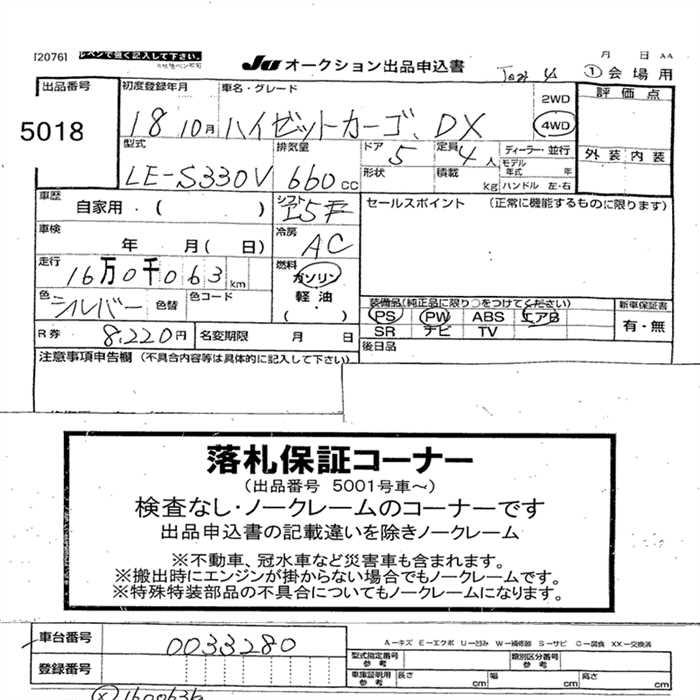 [2076] ルペンで強く記入して下さい。
JU オークション出品申込書
月 日 AA
① 会場用
出品番号 5018
初度登録年月 18 10月
車名・グレード ハイゼットカーゴ、DX
2WD
4WD
評価点
外装 内装
型式 LE-S330V
排気量 660 CC
ドア 5
定員 4人
形状
積載 kg
ディーラー・並行
モデル年式 年
ハンドル 左・右
車歴 自家用・( )
シフト
セールスポイント (正常に機能するものに限ります)
車検 年 月( 日)
冷房 AC
走行 16万0千063 km
燃料 ガソリン
軽油
( ・ )
色 シルバー 色替 色コード
装備品(純正品に限り○をつけてください)
PS PW ABS エアB
SR ナビ TV
新車保証書
有・無
R券 8,220円
名変期限 月 日
後日品
注意事項申告欄 (不具合内容等は具体的に記入して下さい)
落札保証コーナー
(出品番号 5001号車~)
検査なし・ノークレームのコーナーです
出品申込書の記載違いを除きノークレーム
※不動車、冠水車など災害車も含まれます。
※搬出時にエンジンが掛からない場合でもノークレームです。
※特殊特装部品の不具合についてもノークレームになります。
車台番号 0033280
A-キズ E-エクボ U-凹み W-補修跡 S-サビ C-腐食 XX-交換済
型式指定番号 参考
類別区分番号 参考
登録番号
車庫証明用 参考 長さ cm 幅 cm 高さ cm